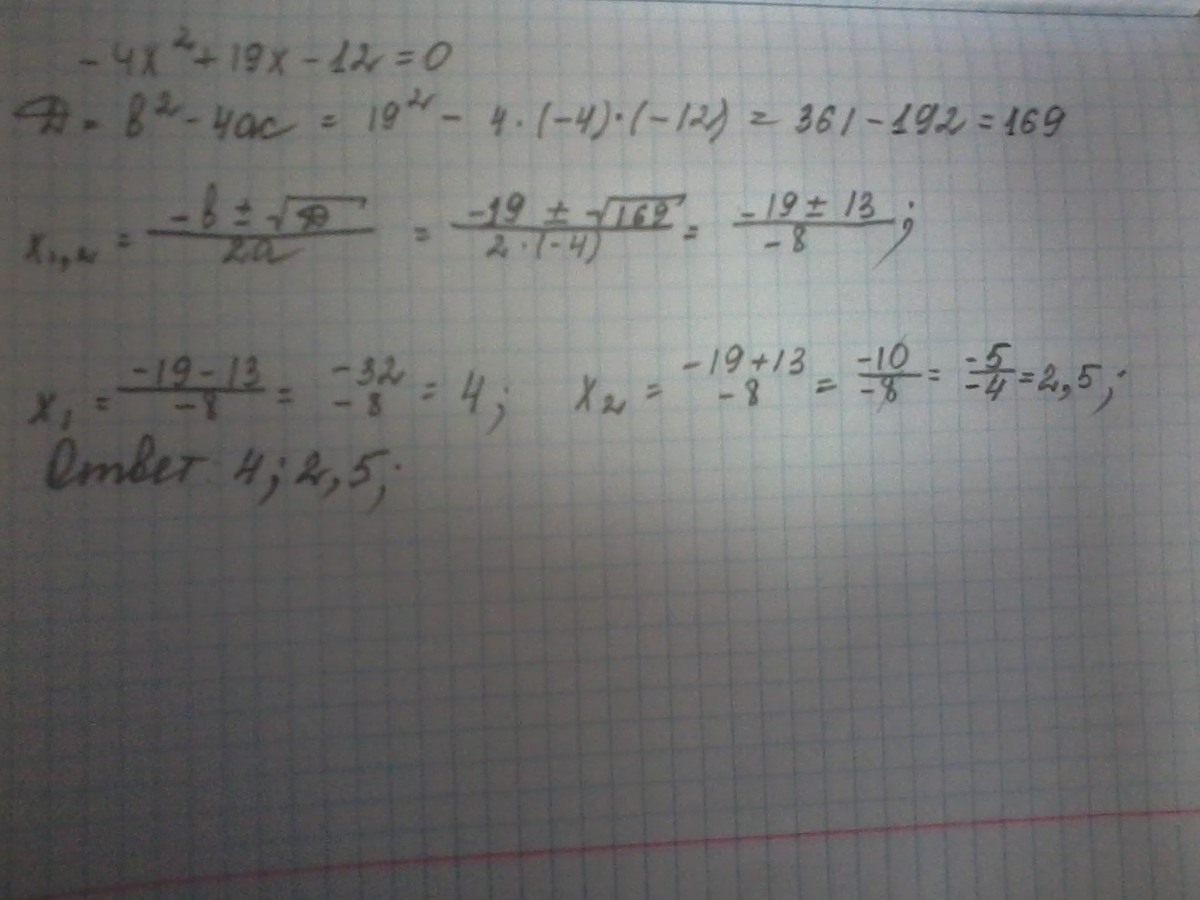 -4x² + 19x - 12 = 0
D = b² - 4ac = 19² - 4 · (-4) · (-12) = 361 - 192 = 169
x₁,₂ = (-b ± √D)/(2a) = (-19 ± √169)/(2 · (-4)) = (-19 ± 13)/(-8) ;
x₁ = (-19 - 13)/(-8) = (-32)/(-8) = 4 ; x₂ = (-19 + 13)/(-8) = (-10)/(-8) = (-5)/(-4) = 2,5 ;
Ответ: 4 ; 2,5 ;